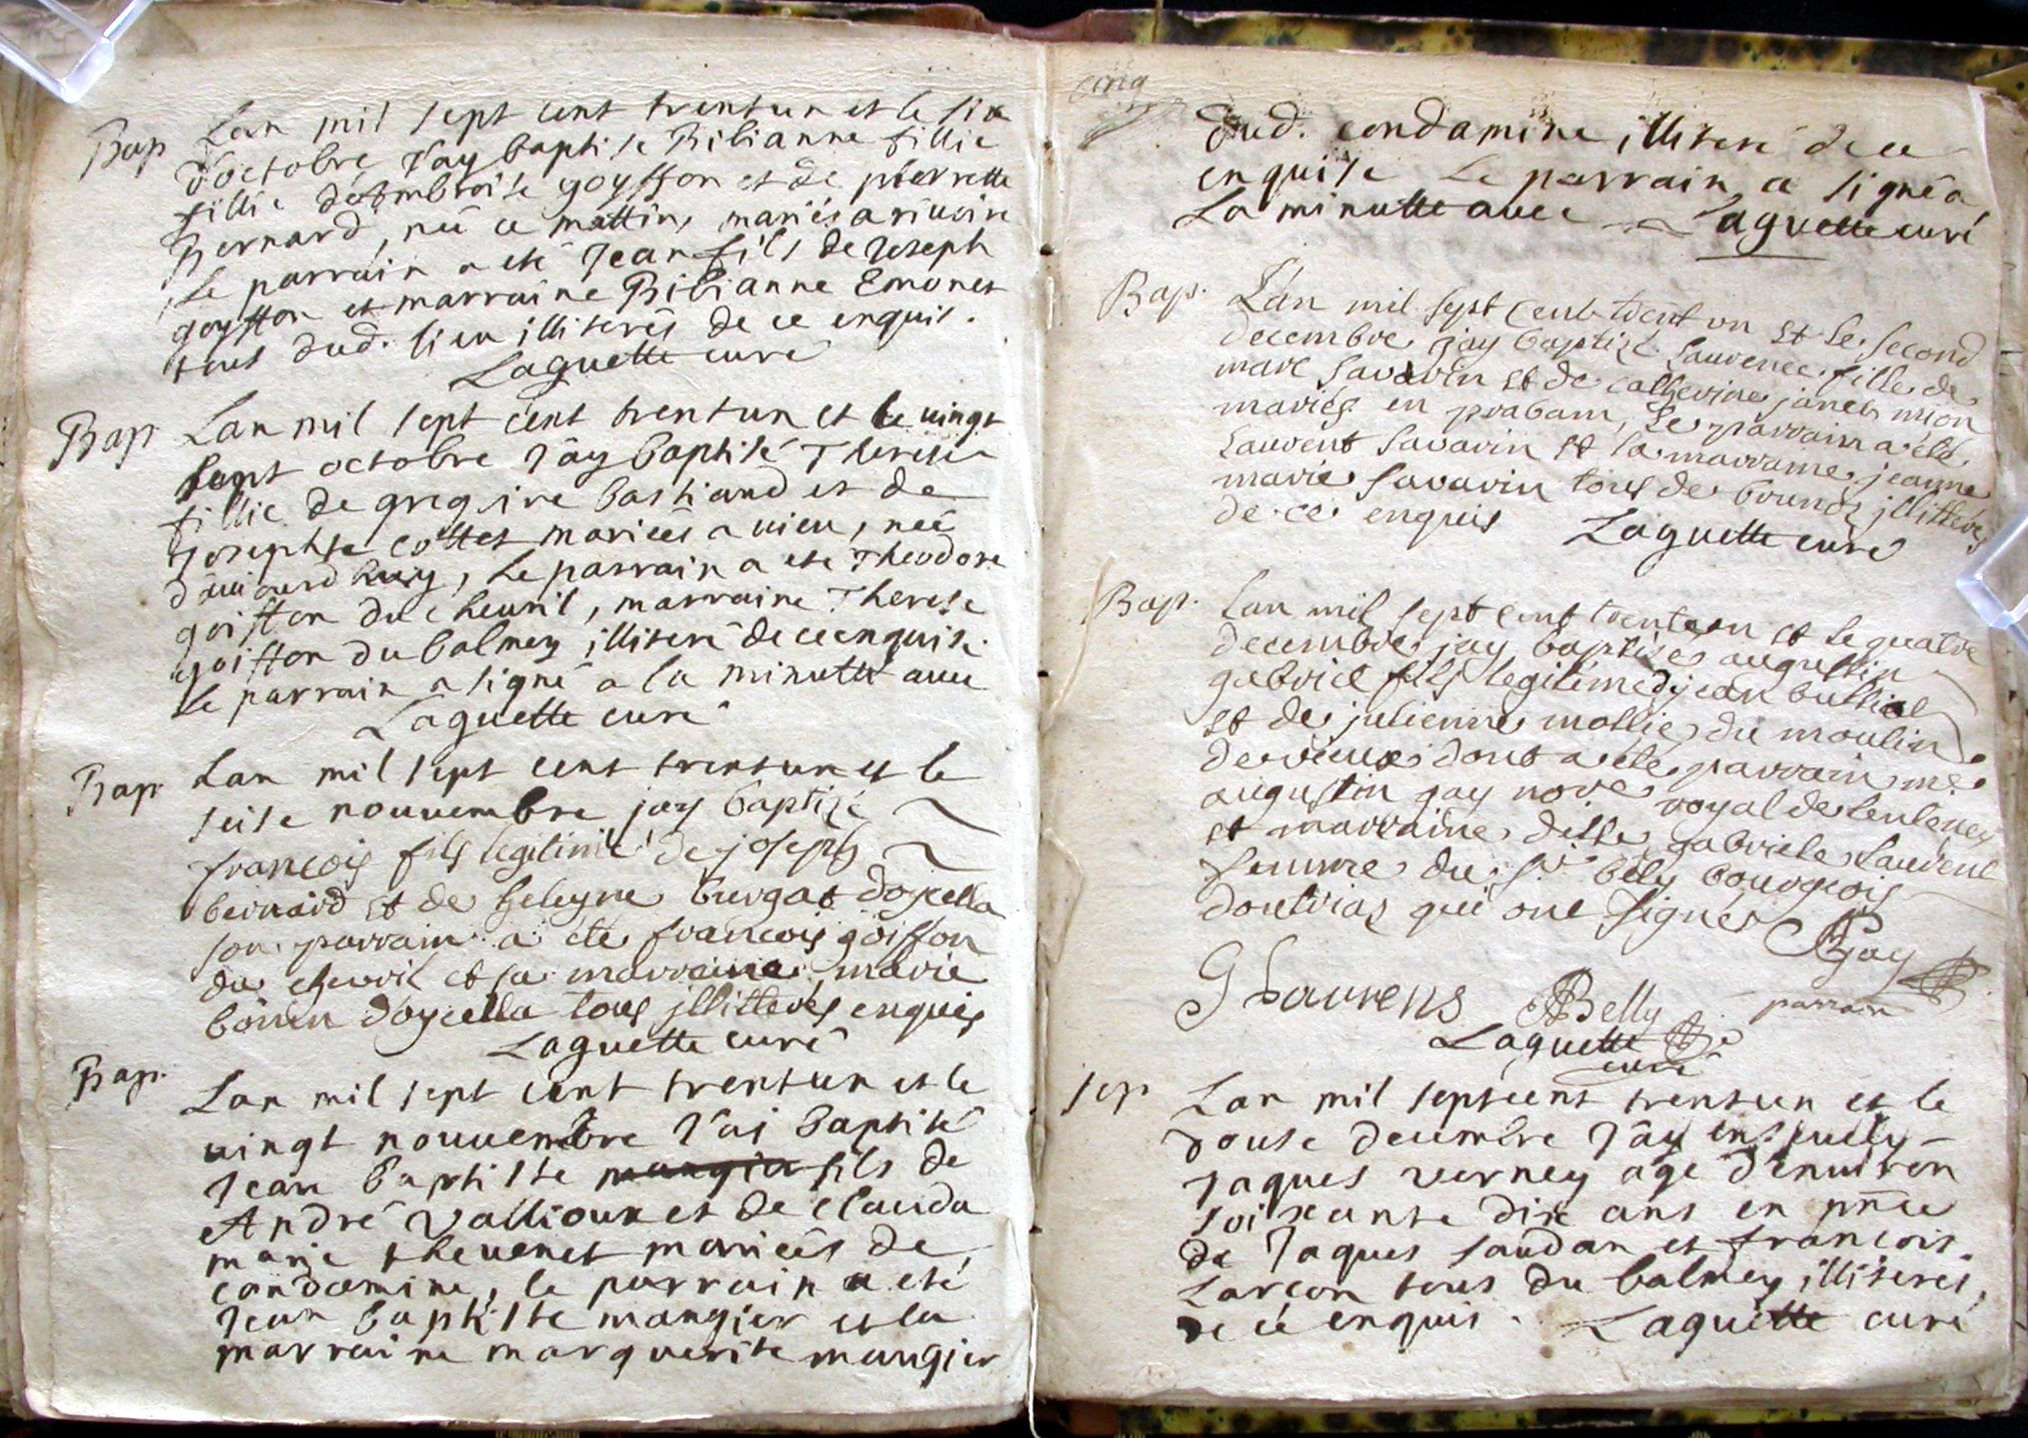 Bap Lan mil sept cent trentun et le six
d'octobre j'ay baptise Bibianne fillie
fillie d'Ambroise goyffon et de pierrette
Bernard, née ce mattin, mariés a rivoire
le parrain a eté Jean fils de Joseph
goyffon et marraine Bibianne Emonet
tous dud. lieu illiterés de ce enquis.
Laguette curé
Bap Lan mil sept cent trentun et le vingt
sept octobre j'ay baptisé Therese
fillie de gregoire bastiand et de
Josephte cottet mariés a vieu, née
d'aujourd huy, le parrain a ete Theodore
goiffon du chevril, marraine Therese
goiffon du balmey illiteré de ce enquise.
le parrain a signé a la minutte avec
Laguette curé
Bap Lan mil sept cent trentun et le
seise nouvembre jay baptizé
francois fils legitime de joseph
bernard et de heleyne burgat doycella
son parrain a été francois goiffon
du chevril et sa marraine marie
doycella tous jllitterés enquis
Laguette curé
Bap. Lan mil sept cent trentun et le
vingt nouvembre J'ai baptisé
Jean baptiste mangier fils de
André Vallioux et de Clauda
marie thevenet mariés de
condamine, le parrain a eté
Jean baptiste mangier et la
marraine marguerite mangier
cinq
dud. condamine illiteré de ce
enquise le parrain a signé a
la minutte avec Laguette curé
Bap. L'an mil sept cent trent un et le second
decembre jay baptizé laurence fille de
marc savarin et de catherine janet mion
mariés en prabam, le parrain a été
Laurent savarin et sa marraine jeanne
marie savarin tous de jllitterés
de ce enquis Laguette curé
Bap. Lan mil sept cent trenteun et le quatre
decembre jay baptisé augustin
gabriel fils legitime dj ean bulliod
et de julienne mollie du moulin
dervieux dont a été parrain me
augustin gay nore royal de lenteney
et marraine dlle gabriele Laurent
femme du sr bely bourgeois
doutriaz qui ont signés Gay
parrain
G Laurens Belly
Laguette
curé
sep Lan mil sept cent trentun et le
douse decembre J'ay ensevely
Jaques verney agé d'environ
soixante dix ans en pnce
de Jaques saudan et francois
Larcon tous du balmey illiterés
de ce enquis. Laguette curé